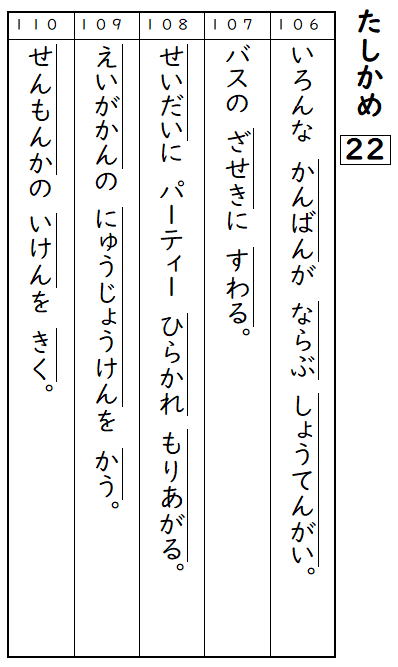 たしかめ 22
106
いろんな かんばんが ならぶ しょうてんがい。
107
バスの ざせきに すわる。
108
せいだいに パーティー ひらかれ もりあがる。
109
えいがかんの にゅうじょうけんを かう。
110
せんもんかの いけんを きく。